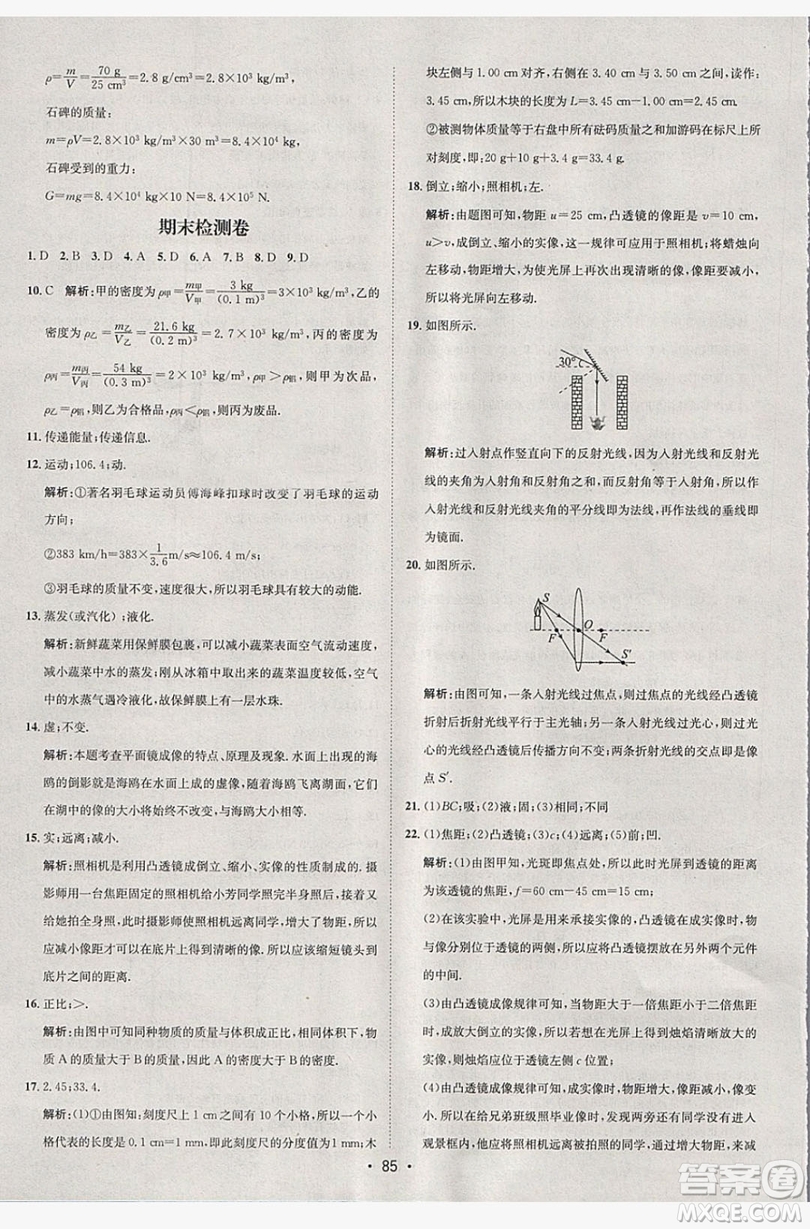 ρ=m/V=70 g/25 cm³=2.8 g/cm³=2.8×10³ kg/m³
石碑的质量:
m=ρV=2.8×10³ kg/m³×30 m³=8.4×10⁴ kg
石碑受到的重力:
G=mg=8.4×10⁴ kg×10 N/kg=8.4×10⁵ N.
期末检测卷
1. D 2. B 3. D 4. A 5. D 6. A 7. B 8. D 9. D
10. C 解析:甲的密度为ρ甲=m甲/V甲=3 kg/(0.1 m)³=3×10³ kg/m³,乙的
密度为ρ乙=m乙/V乙=21.6 kg/(0.2 m)³=2.7×10³ kg/m³,丙的密度为
ρ丙=m丙/V丙=54 kg/(0.3 m)³=2×10³ kg/m³,ρ甲>ρ铝,则甲为次品,
ρ乙=ρ铝,则乙为合格品,ρ丙<ρ铝,则丙为废品.
11. 传递能量;传递信息.
12. 运动;106.4;动.
解析:①著名羽毛球运动员傅海峰扣球时改变了羽毛球的运动
方向;
②383 km/h=383×1/3.6 m/s≈106.4 m/s;
③羽毛球的质量不变,速度增大,所以羽毛球具有较大的动能.
13. 蒸发(或汽化);液化.
解析:新鲜蔬菜用保鲜膜包裹,可以减小蔬菜表面空气流动速度,
减小蔬菜中水的蒸发;刚从冰箱中取出的蔬菜温度较低,空气
中的水蒸气遇冷液化,故保鲜膜上有一层水珠.
14. 虚;不变.
解析:本题考查平面镜成像的特点、原理及现象.水面上出现的海
鸥的倒影就是海鸥在水面上成的虚像,随着海鸥飞离水面,它们
在湖中的像大小将始终不改变,与海鸥大小相等.
15. 实;远离;减小.
解析:照相机是利用凸透镜成倒立、缩小、实像的原理工作的.摄
影师用一台焦距固定的照相机给小芳同学照完半身照后,若要
给她拍摄全身照,此时摄影师应使照相机远离同学,增大物距,所
以应减小像距才可在底片上得到清晰的像.所以应该缩短镜头到
底片之间的距离.
16. 正比;>.
解析:由图中可知同种物质的质量与体积成正比,相同体积下,物
质A的质量大于B的质量,因此A的密度大于B的密度.
17. 2.45;33.4.
解析:(1)①由图知:刻度尺上1 cm之间有10个小格,所以一个小
格代表的长度是0.1 cm=1 mm,即此刻度尺的分度值为1 mm;木
块左侧与1.00 cm对齐,右侧在3.40 cm与3.50 cm之间,读作:
3.45 cm,所以木块的长度为L=3.45 cm-1.00 cm=2.45 cm.
②被测物体质量等于右盘中所有砝码质量和加游码在标尺上所
对刻度,即:20 g+10 g+3.4 g=33.4 g.
18. 倒立;缩小;照相机;左.
解析:由题图可知,物距u=25 cm,凸透镜的像距是v=10 cm,
u>v,成倒立、缩小的实像,这一规律可应用于照相机;将蜡烛向右
左移动时,物距增大,为使光屏上再次出现清晰的像,像距要减小,
所以应将光屏向左移动.
19. 如图所示.
30°
解析:过入射点作竖直向下的反射光线,入射光线与反射光线
的夹角为入射角和反射角之和,又因为反射角等于入射角,所以
作入射光线和反射光线夹角的平分线即为法线,再作法线的垂线即
为镜面.
20. 如图所示.
S O F F S′
解析:由图可知,一条入射光线过焦点,则过焦点的光线经凸透镜
折射后折射光线平行于主光轴;另一条入射光线过光心,则过光
心的光线经凸透镜后传播方向不变;两条折射光线的交点即为像
点S′.
21. (1)BC;吸;(2)液;固;(3)相同;不同
22. (1)焦距;(2)凸透镜;(3)c;(4)远离;(5)前;凹.
解析:(1)由图甲知,光斑即为焦点,所以此时光屏到透镜的距离
为该透镜的焦距,f=60 cm-45 cm=15 cm;
(2)在该实验中,光屏应能承接到像,凸透镜应成实像,成实像时,物
与像分别位于透镜的两侧,所以应将凸透镜摆放在另两个元件
的中间.
(3)由凸透镜成像规律可知,当物距大于一倍焦距小于二倍焦距
时,成放大倒立的实像,所以若要想在光屏上得到烛焰清晰放大
的实像,则烛焰应位于透镜左侧c位置;
(4)由凸透镜成像规律可知,成实像时,物距增大,像距减小,像变
小,所以在给兄弟班级照毕业像时,发现有少数同学没有进入取
景框内,应使照相机远离被拍照的同学,增大物距,同时像距要减
85
答案圈
MXQE.COM